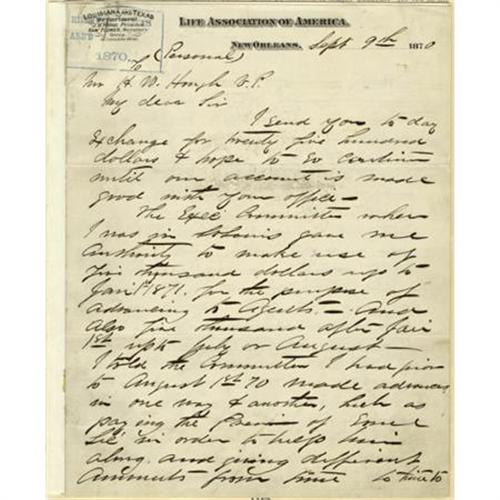 LOUISIANA AND TEXAS
Department
LIFE ASSOCIATION OF AMERICA.
NEW ORLEANS, Sept 9th 1870
1870
(Personal)
Mr H. W. Hough V.P.
My dear Sir
I send you to day
Exchange for twenty five hundred
dollars & hope to so continue
until our account is made
good with your office -
The Exec Committee when
I was in St Louis gave me
Authority to make use of
Five thousand dollars up to
Jany 1871. for the purpose of
advancing to Agents. - And
Also five thousand after Jan
1st up to July or August -
I told the Committee I had prior
to August 1st 70 made advances
in one way & another, such as
paying the of some
in order to help him
along. and giving different
ammounts from time to time to